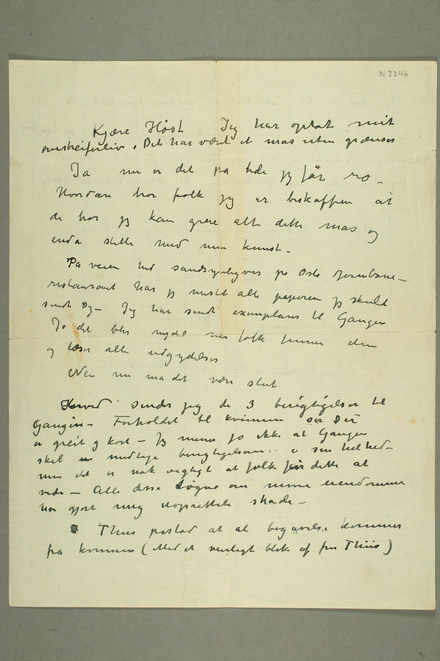 N 3246
Kjære Høst Jeg har optat mit
omstreiferliv. Det har været et mas uten grænser
Ja nu er det på tide jeg får ro –
Hvordan tror folk jeg er beskaffen at
de tror jeg kan greie alt dette mas og
enda stelle med min kunst –
På veien hid sandsynligvis på Oslo jernbane–
restaurant har jeg mistet alle papirer jeg skulde
sendt Dig – Jeg har sendt exemplarer til Gauguin
Jo det blir nydel når folk finner dem
og læser alle udgydelser
Men nu må det være slut
Herved sender jeg de 3 berigtigelser til
Gauguin – Forholdet til kvinnen
er greit og kort – Jeg mener jo ikke at Gauguin
skal medtage berigtigelsene i sin helhed –
men det er nok vigtigt at folk får dette at
vide – Alle disse løgne om mine eiendomme
har gjort mig uoprettelig skade –
Thiis påstod at al begavelse kommer
fra kvinnen (Med et venligt blik af fru Thiis)